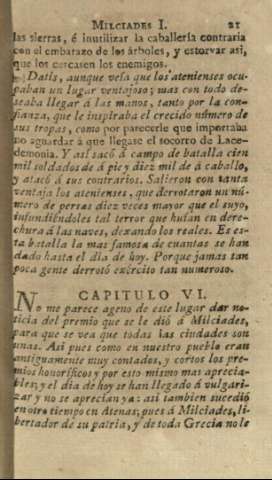 MILCIADES I. 21
las sierras, é inutilizar la caballería contraria
con el embarazo de los árboles, y estorvar asi,
que los cercasen los enemigos.
Datis, aunque veía que los atenienses ocu-
paban un lugar ventajoso; mas con todo de-
seaba llegar á las manos, tanto por la con-
fianza, que le inspiraba el crecido número de
sus tropas, como por parecerle que importaba
no aguardar á que llegase el socorro de Lace-
demonia. Y asi sacó á campo de batalla cien
mil soldados de á pie y diez mil de á caballo,
y atacó á sus contrarios. Salieron con tanta
ventaja los atenienses, que derrotaron un nú-
mero de persas diez veces mayor que el suyo,
infundiéndoles tal terror que huían en dere-
chura á las naves, dexando los reales. Es es-
ta batalla la mas famosa de cuantas se han
dado hasta el dia de hoy. Porque jamas tan
poca gente derrotó exército tan numeroso.
CAPITULO VI.
No me parece ageno de este lugar dar no-
ticia del premio que se le dió á Milciades,
para que se vea que todas las ciudades son
unas. Asi pues como en nuestro pueblo eran
antiguamente muy contados, y cortos los pre-
mios honoríficos y por esto mismo mas aprecia-
bles; y el dia de hoy se han llegado á vulgari-
zar y no se aprecian ya: asi tambien sucedió
en otro tiempo en Atenas; pues á Milciades, li-
bertador de su patria, y de toda Grecia no le